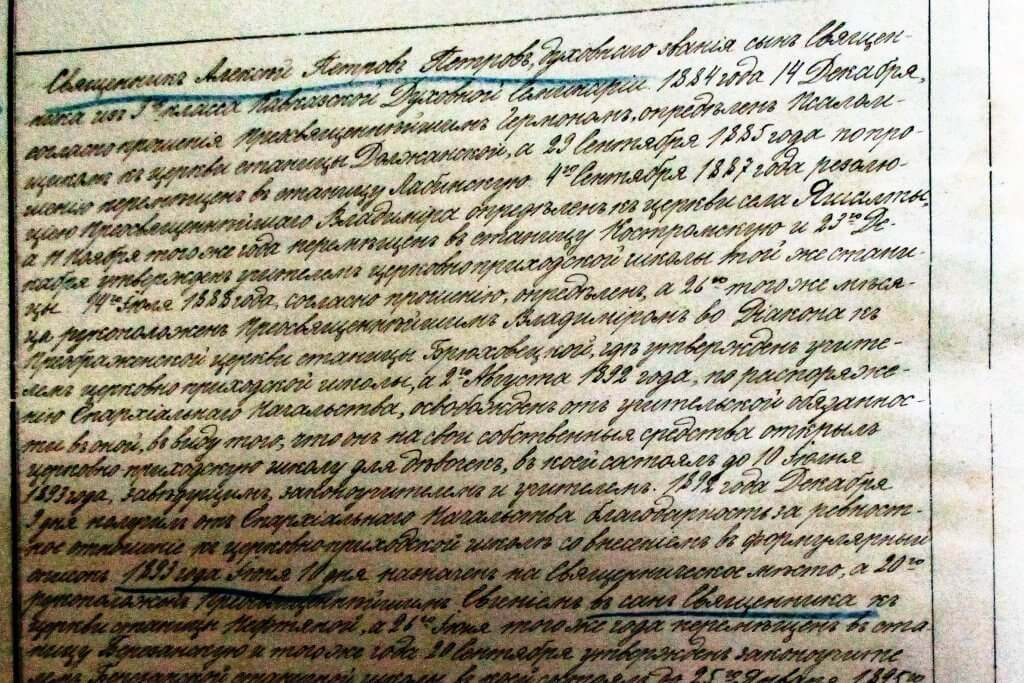 Священникъ Алексѣй Петровъ Петровъ, духовнаго званія сынъ Священ-
ника изъ 3го класса Кавказской Духовной Семинаріи. 1884 года 14 Декабря,
согласно прошенія Преосвященнѣйшимъ Германомъ, опредѣленъ Псалом-
щикомъ къ церкви станицы Должанской, а 29 Сентября 1885 года по про-
шенію перемѣщенъ въ станицу Лабинскую. 4го Сентября 1887 года резолю-
ціею Преосвященнѣйшаго Владиміра опредѣленъ къ церкви села Яшалты,
а 11 Ноября того же года перемѣщенъ въ станицу Костромскую и 23го Де-
кабря утвержденъ учителемъ церковно приходской школы той же стани-
цы. 14го Іюля 1888 года, согласно прошенію, опредѣленъ, а 26го того же мѣся-
ца рукоположенъ Преосвященнѣйшимъ Владиміромъ во Діакона къ
Преображенской церкви станицы Брюховецкой, гдѣ утвержденъ учите-
лемъ церковно приходской школы, а 2го Августа 1892 года, по распоряже-
нію Епархіальнаго Начальства, освобожденъ отъ учительской обязаннос-
ти въ оной, въ виду того, что онъ на свои собственныя средства открылъ
церковно приходскую школу для дѣвочекъ, въ коей состоялъ до 10 Іюня
1893 года, завѣдущимъ, законоучителемъ и учителемъ. 1892 года Декабря
9 дня получилъ отъ Епархіальнаго Начальства благодарность за ревност-
ное отношеніе къ церковно-приходской школѣ со внесеніемъ въ формулярный
списокъ. 1893 года Іюня 10 дня назначенъ на Священническое мѣсто, а 20го
рукоположенъ Преосвященнѣйшимъ въ санъ Священника къ
церкви станицы Нефтяной, а 26го Іюня того же года перемѣщенъ въ ста-
ницу Бесгеанскую и того же года 20 Сентября утвержденъ законоучите
лемъ школы въ коей состоялъ до 25го Января 1895го